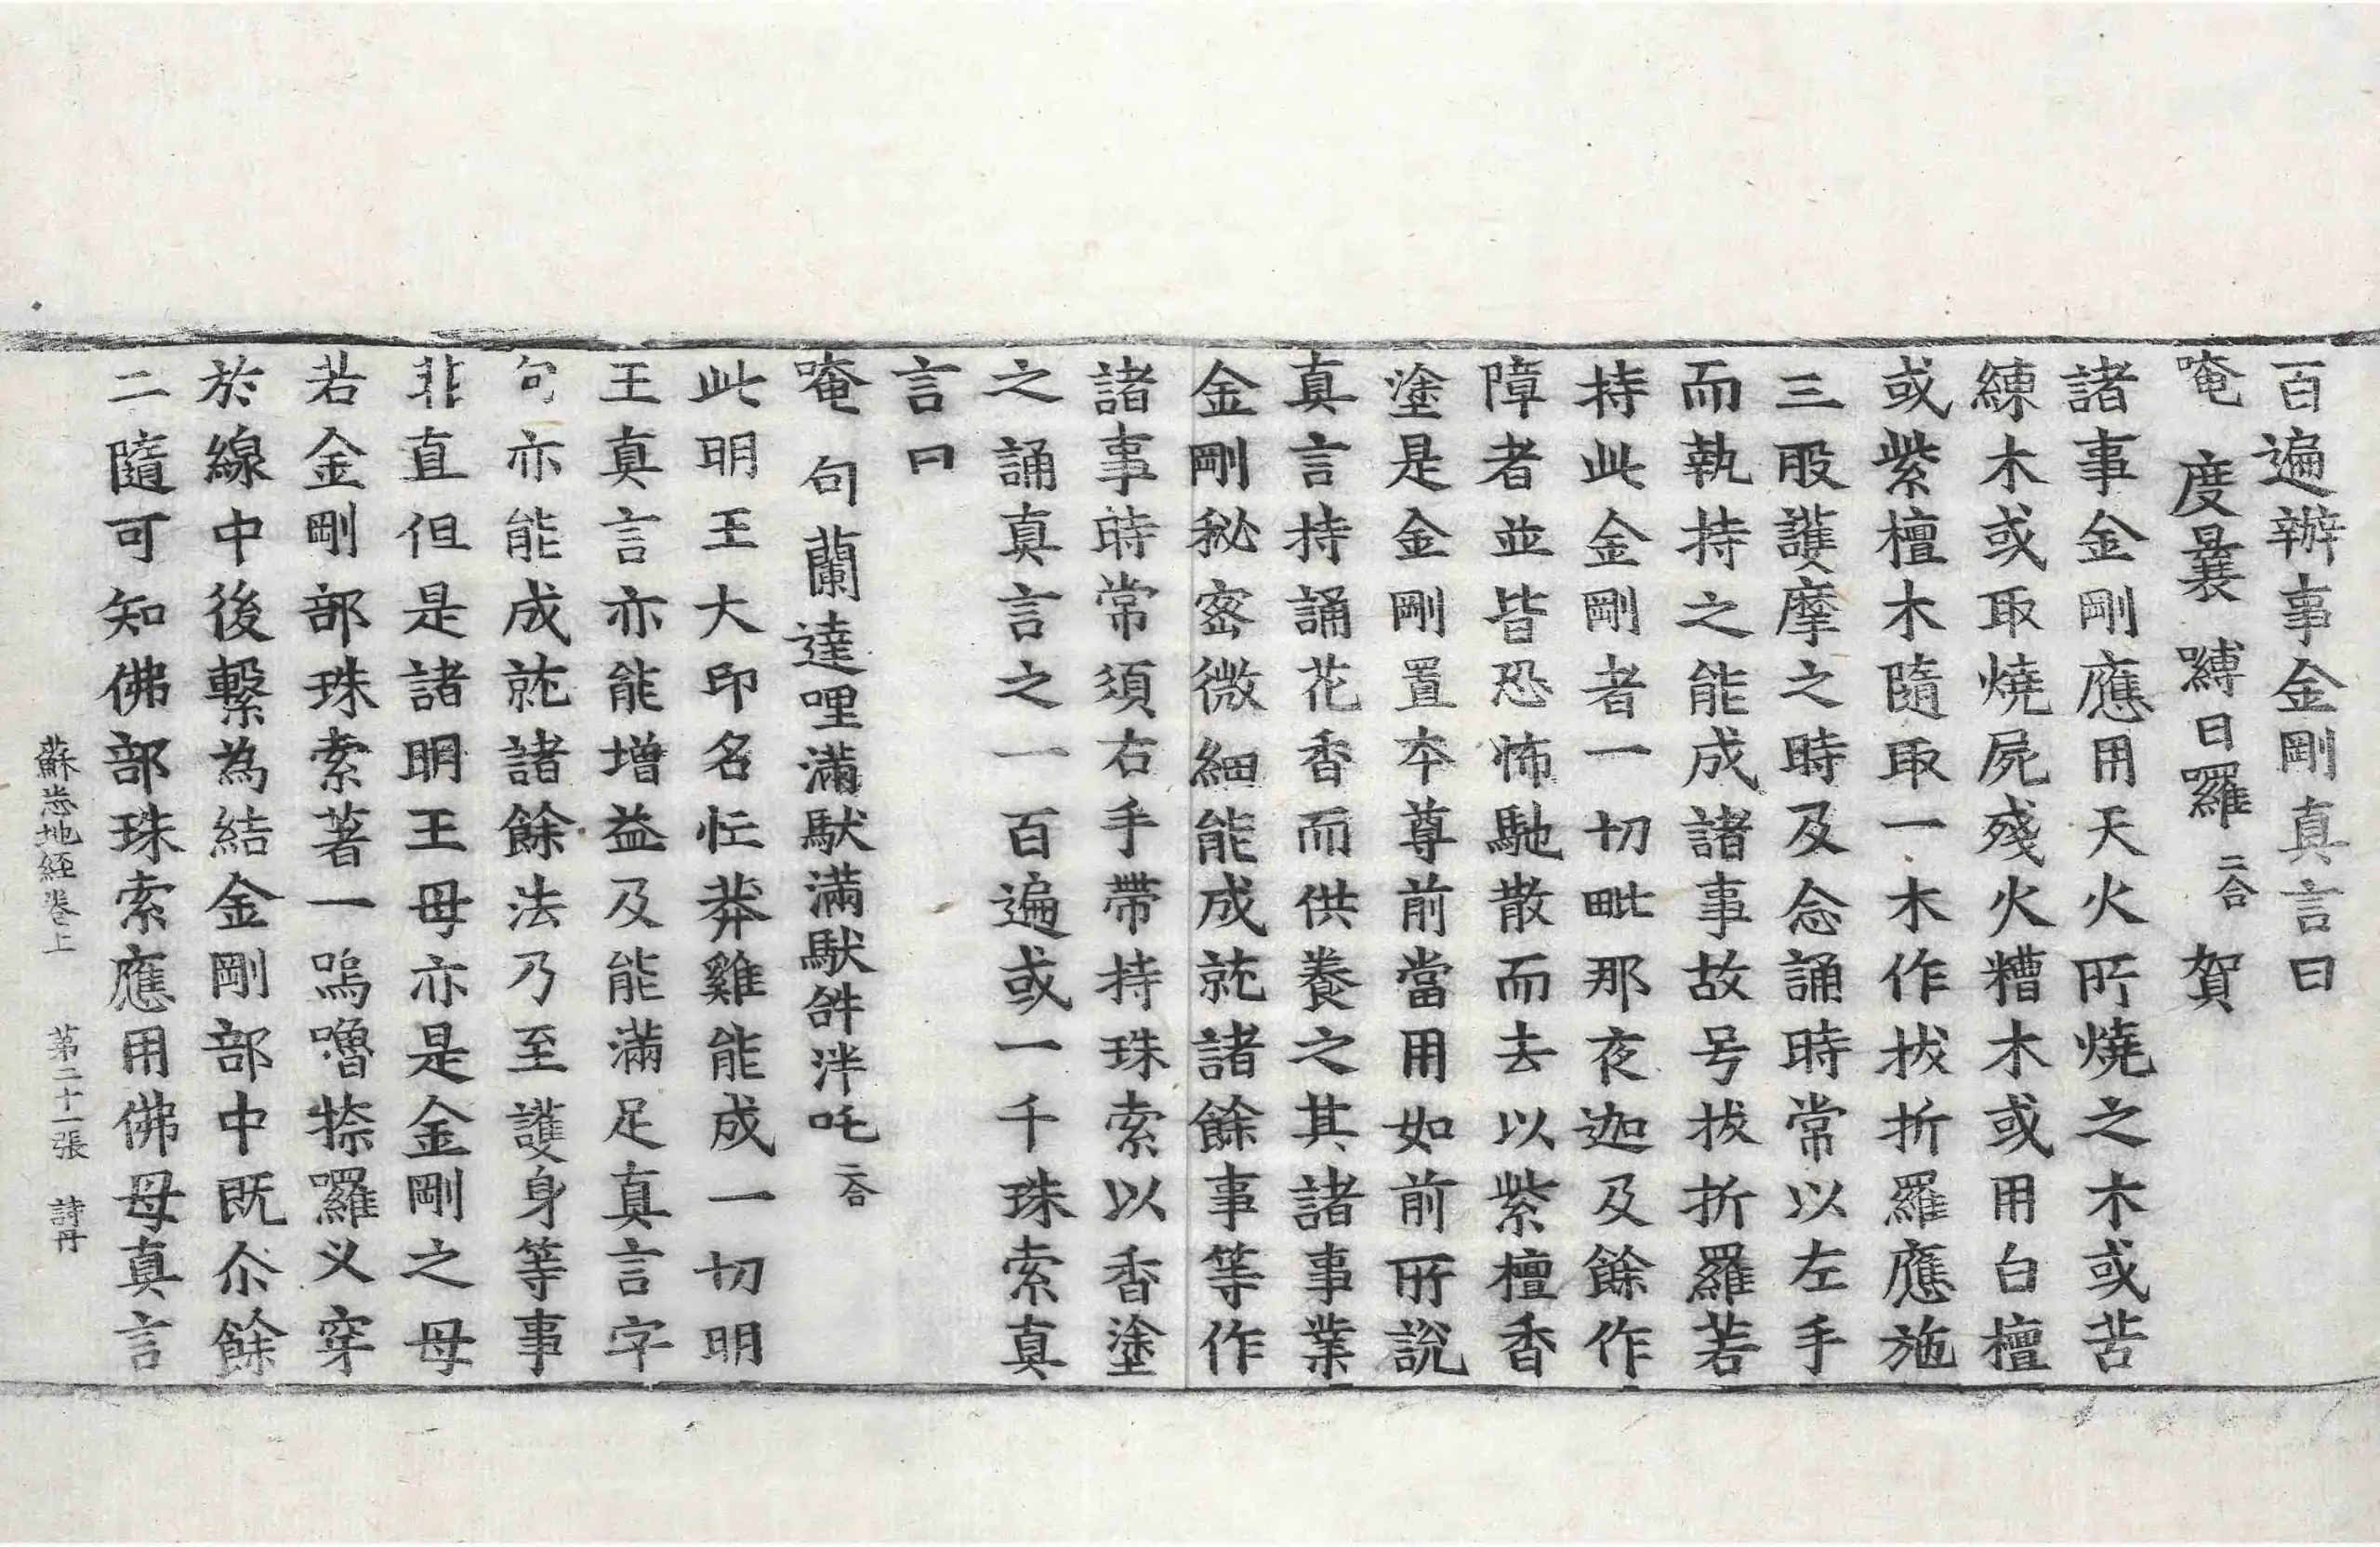 百遍辦事金剛真言曰
唵 度曩 嚩日囉二合 賀
諸事金剛應用天火所燒之木或苦
練木或取燒屍殘火糟木或用白檀
或紫檀木隨取一木作拔折羅應施
三股護摩之時及念誦時常以左手
而執持之能成諸事故号拔折羅若
持此金剛者一切毗那夜迦及餘作
障者並皆恐怖馳散而去以紫檀香
塗是金剛置本尊前當用如前所說
真言持誦花香而供養之其諸事業
金剛秘密微細能成就諸餘事等作
諸事時常須右手帶持珠索以香塗
之誦真言之一百遍或一千珠索真
言曰
唵 句蘭達哩滿馱滿馱𤙖泮吒二合
此明王大印名忙莽雞能成一切明
王真言亦能增益及能滿足真言字
句亦能成就諸餘法乃至護身等事
非直但是諸明王母亦是金剛之母
若金剛部珠索著一嗚嚕捺囉义穿
於線中後繫為結金剛部中既尒餘
二隨可知佛部珠索應用佛母真言
蘇悉地經卷上 第二十一張 詩丹